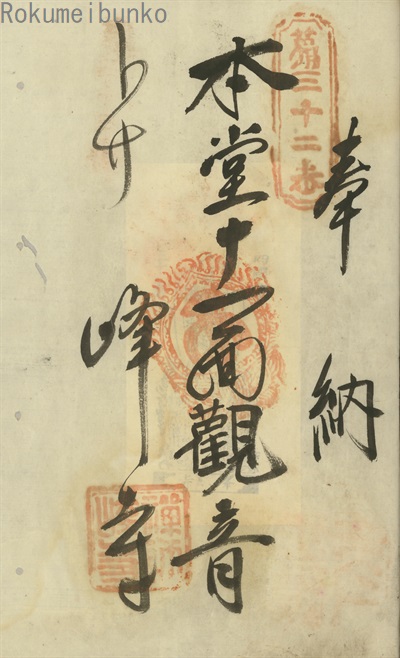 Rokumeibunko
奉納
第三十二番
本堂十一面觀音
峰寺